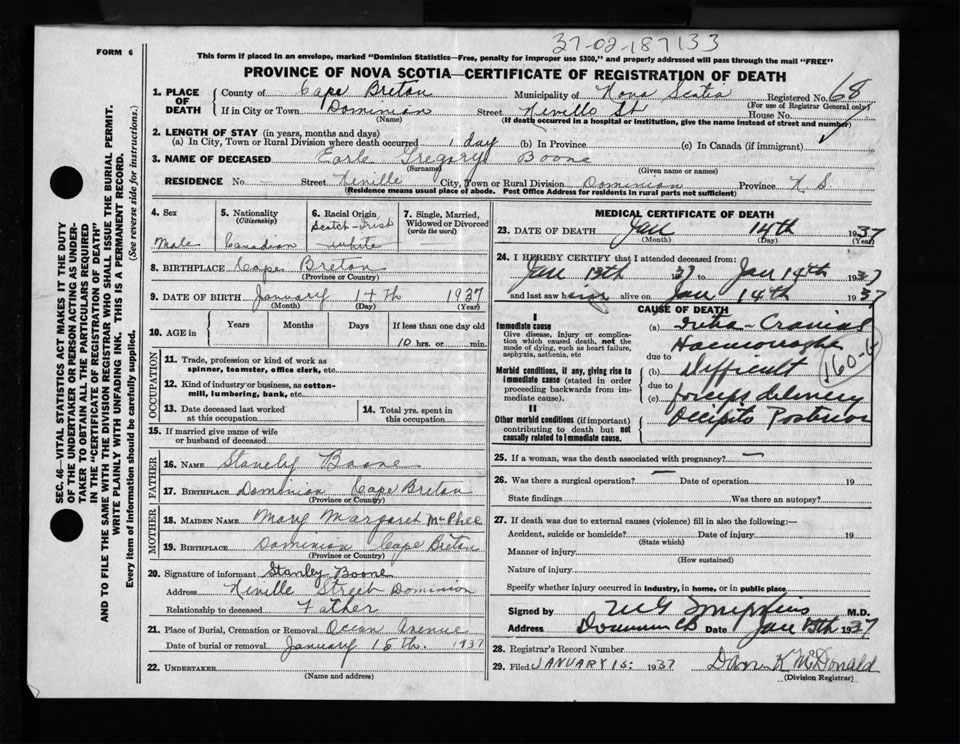 37-02-187133
FORM 6
This form if placed in an envelope, marked "Dominion Statistics—Free, penalty for improper use $300," and properly addressed will pass through the mail "FREE"
PROVINCE OF NOVA SCOTIA—CERTIFICATE OF REGISTRATION OF DEATH
1. PLACE OF DEATH
County of Cape Breton Municipality of Nova Scotia Registered No. 68
(For use of Registrar General only)
If in City or Town Dominion Street Neville St House No.
(Name) (If death occurred in a hospital or institution, give the name instead of street and number)
2. LENGTH OF STAY (in years, months and days)
(a) In City, Town or Rural Division where death occurred 1 day (b) In Province (c) In Canada (if immigrant)
3. NAME OF DECEASED Earle Gregory Boone
(Surname) (Given name or names)
RESIDENCE No. Street Neville City, Town or Rural Division Dominion Province N S
(Residence means usual place of abode. Post Office Address for residents in rural parts not sufficient)
4. Sex Male
5. Nationality (Citizenship) Canadian
6. Racial Origin Scotch-Irish white
7. Single, Married, Widowed or Divorced (write the word)
8. BIRTHPLACE Cape Breton
(Province or Country)
9. DATE OF BIRTH January 14th 1937
(Month) (Day) (Year)
10. AGE in Years Months Days If less than one day old
10 hrs. or min.
OCCUPATION
11. Trade, profession or kind of work as spinner, teamster, office clerk, etc.
12. Kind of industry or business, as cotton-mill, lumbering, bank, etc.
13. Date deceased last worked at this occupation
14. Total yrs. spent in this occupation
15. If married give name of wife or husband of deceased
FATHER
16. NAME Stanely Boone
17. BIRTHPLACE Dominion Cape Breton
(Province or Country)
MOTHER
18. MAIDEN NAME Mary Margaret McPhee
19. BIRTHPLACE Dominion Cape Breton
(Province or Country)
20. Signature of informant Stanley Boone
Address Neville Street Dominion
Relationship to deceased Father
21. Place of Burial, Cremation or Removal Ocean Avenue
Date of burial or removal January 15th. 1937
22. UNDERTAKER
(Name and address)
MEDICAL CERTIFICATE OF DEATH
23. DATE OF DEATH Jan 14th 1937
(Month) (Day) (Year)
24. I HEREBY CERTIFY that I attended deceased from:
Jan 13th 37 to Jan 14th 1937
and last saw him alive on Jan 14th 1937
CAUSE OF DEATH
I
Immediate cause
Give disease, injury or complication which caused death, not the mode of dying, such as heart failure, asphyxia, asthenia, etc
(a) Intra-Cranial
Haemorraghe
due to
Morbid conditions, if any, giving rise to immediate cause (stated in order proceeding backwards from immediate cause).
(b) Difficult
due to
(c) forceps delivery
160-
II
Other morbid conditions (if important) contributing to death but not causally related to immediate cause.
Occipito Posterior
25. If a woman, was the death associated with pregnancy? —
26. Was there a surgical operation? — Date of operation 19
State findings Was there an autopsy?
27. If death was due to external causes (violence) fill in also the following:—
Accident, suicide or homicide? Date of injury 19
(State which)
Manner of injury
(How sustained)
Nature of injury
Specify whether injury occurred in industry, in home, or in public place
Signed by M.D.
Address Dominion CB Date Jan 15th 1937
28. Registrar's Record Number
29. Filed JANUARY 15: 1937 Dan K McDonald
(Division Registrar)
SEC. 46—VITAL STATISTICS ACT MAKES IT THE DUTY
OF THE UNDERTAKER OR PERSON ACTING AS UNDER-
TAKER TO OBTAIN ALL THE PARTICULARS REQUIRED
IN THE "CERTIFICATE OF REGISTRATION OF DEATH"
AND TO FILE THE SAME WITH THE DIVISION REGISTRAR WHO SHALL ISSUE THE BURIAL PERMIT.
WRITE PLAINLY WITH UNFADING INK. THIS IS A PERMANENT RECORD.
Every item of information should be carefully supplied. (See reverse side for instructions.)